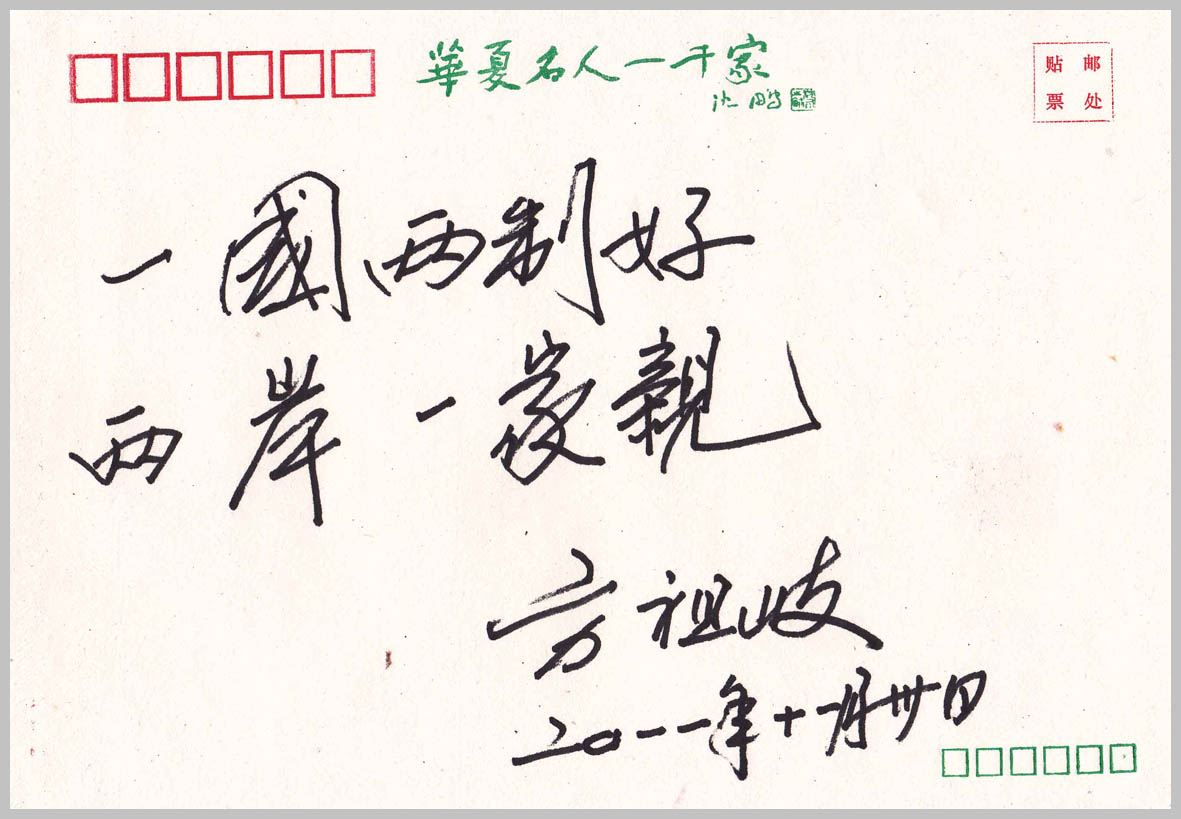 華夏名人一千家
沈鹏
贴邮
票处
一國两制好
两岸一家親
方祖岐
二〇一一年十一月卅日